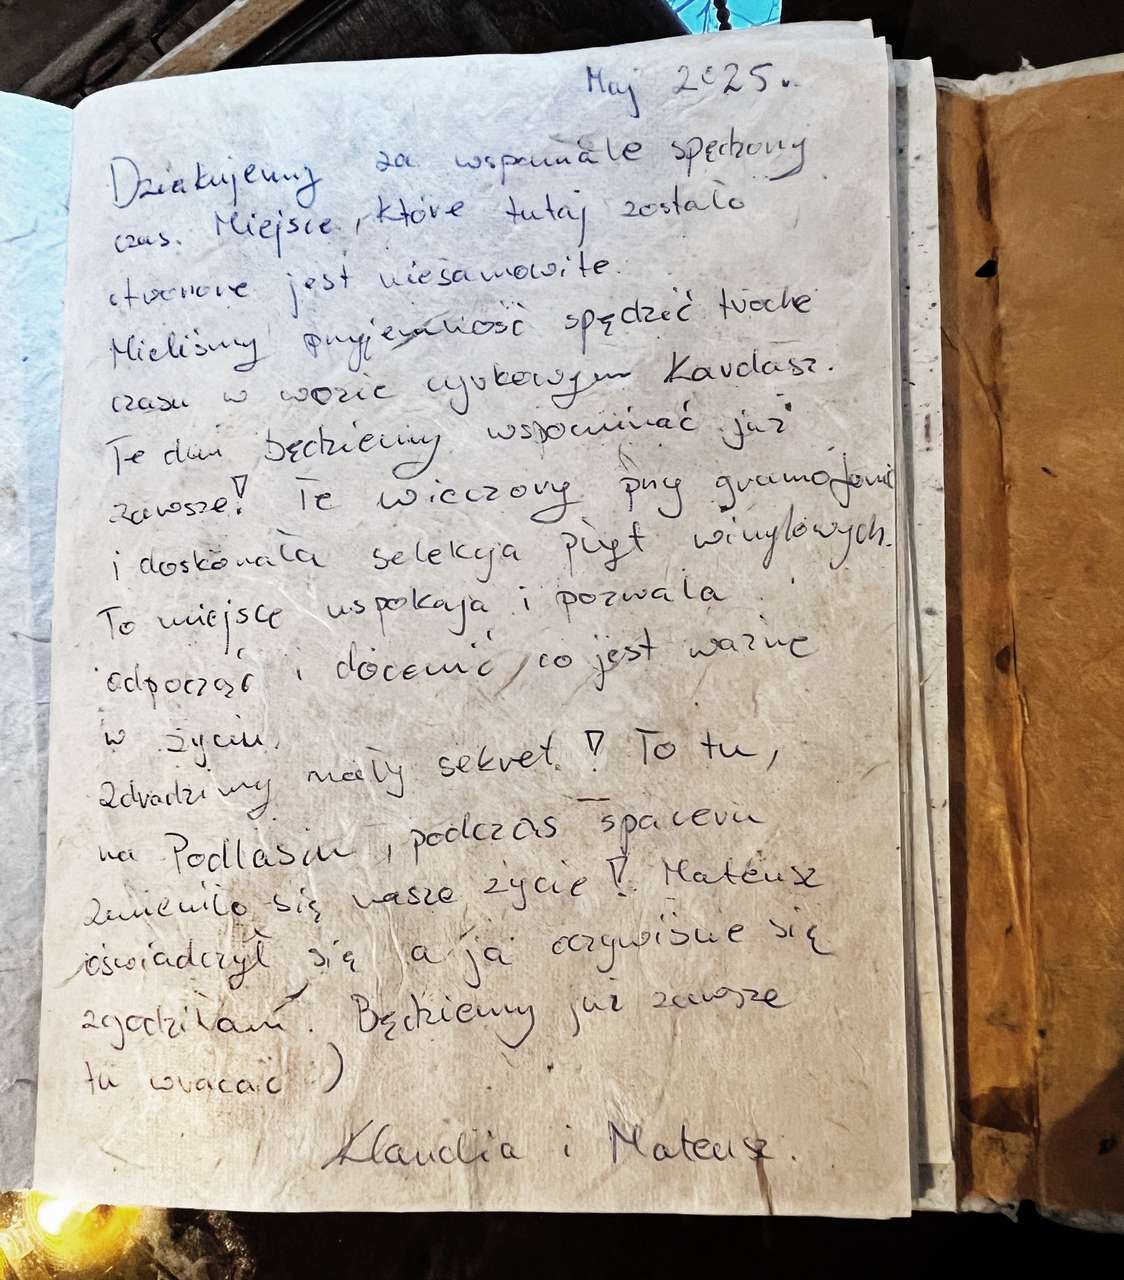 Maj 2025r.
Dziękujemy za wspaniale spędzony
czas. Miejsce, które tutaj zostało
stworzone jest niesamowite.
Mieliśmy przyjemność spędzić trochę
czasu w wozie cyrkowym Kardasz.
Te dni będziemy wspominać już
zawsze! Te wieczory przy gramofonie
i doskonała selekcja płyt winylowych.
To miejsce uspokaja i pozwala
odpocząć i docenić, co jest ważne
w życiu.
Zdradzimy mały sekret! To tu,
na Podlasiu, podczas spaceru
zmieniło się nasze życie! Mateusz
oświadczył się a ja oczywiście się
zgodziłam. Będziemy już zawsze
tu wracać :)
Klaudia i Mateusz.